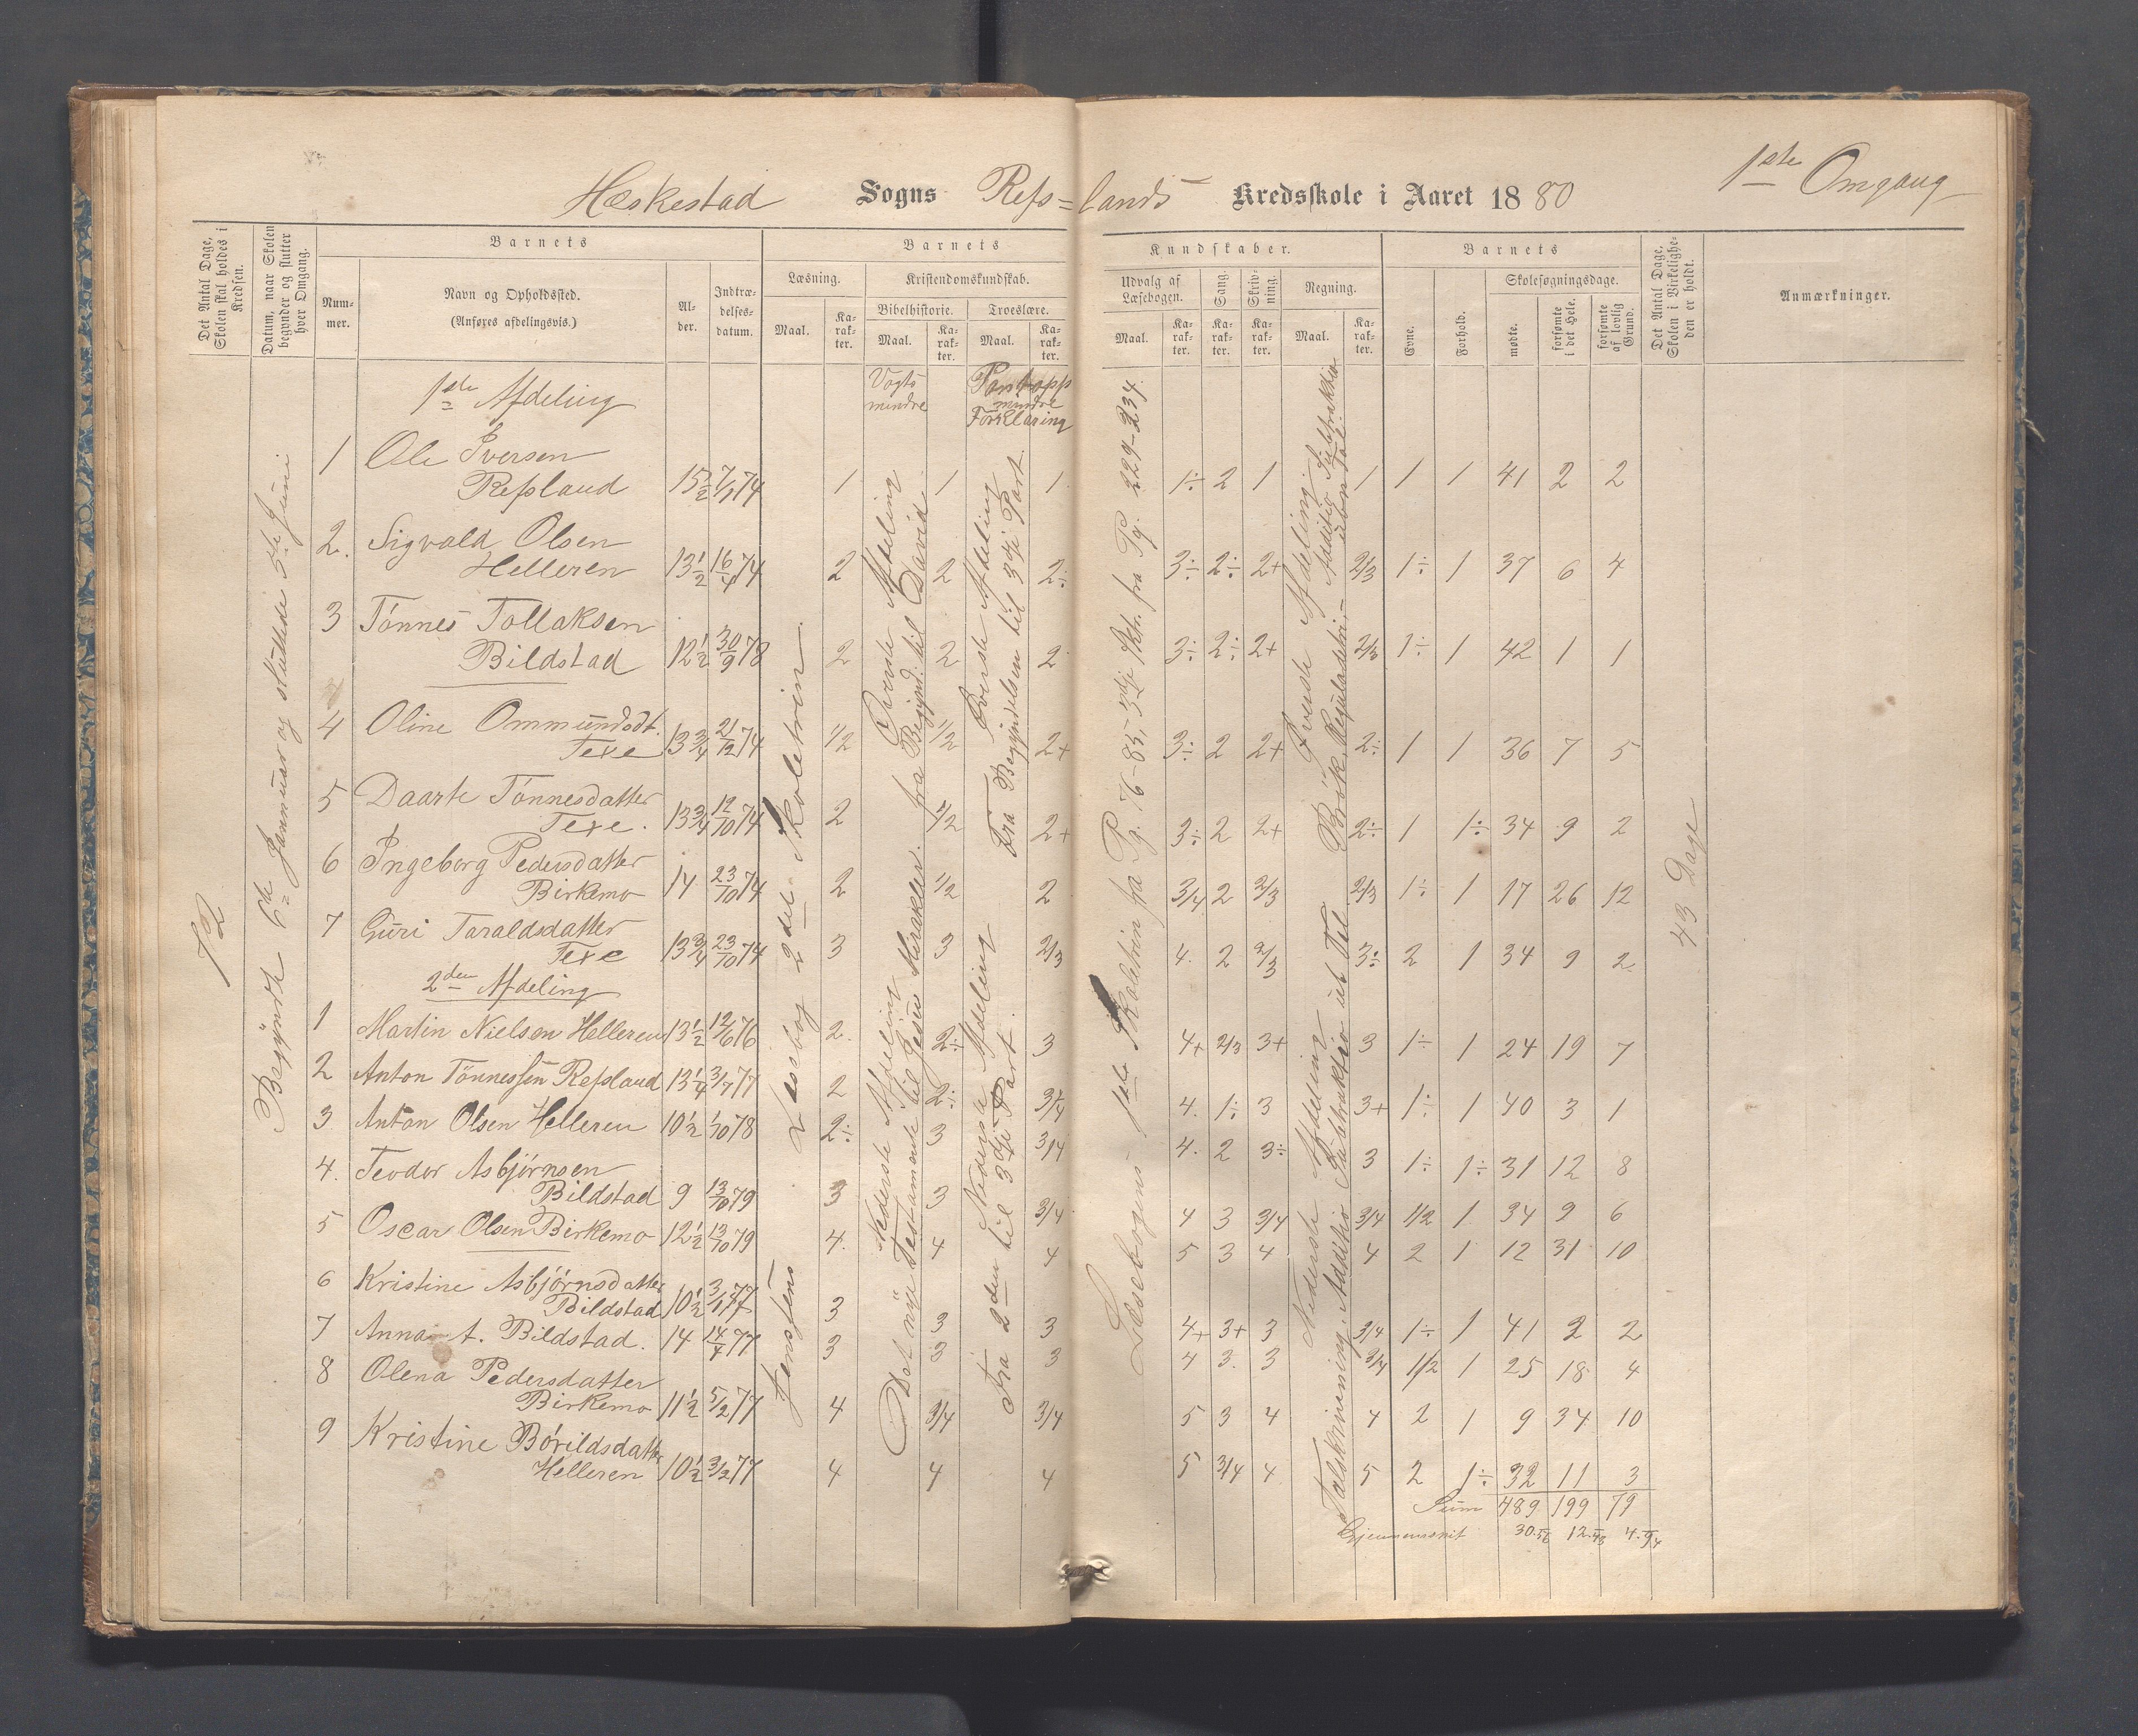 Heskestad Sogns Refs=lands Kredsskole i Aaret 1880 1ste Omgang
Det Antal Dage, Skolen skal holdes i Kredsen.
Datum, naar Skolen begynder og slutter hver Omgang.
Barnets
Nummer.
Navn og Opholdssted.
(Anføres afdelingsvis.)
Alder.
Indtrædelsesdatum.
Barnets
Læsning.
Maal.
Karakter.
Kristendomskundskab.
Bibelhistorie.
Maal.
Karakter.
Troeslære.
Maal.
Karakter.
Kundskaber.
Udvalg af Læsebogen.
Maal.
Karakter.
Sang.
Karakter.
Skrivning.
Karakter.
Regning.
Maal.
Karakter.
Barnets
Evne.
Forhold.
Skolesøgningsdage.
mødte.
forsømte i det Hele.
forsømte af lovlig Grund.
Det Antal Dage, Skolen i Virkeligheden er holdt.
Anmærkninger.
72
Begyndte 6te Januar og sluttede 5te Juni
Jensens Læsebog 2del Skoletrin
Vogts mindre
Øverste Afdeling fra Begynd. til David
Nederste Afdeling
Det nye Testamente til Jesu Mirakler.
Pontopp mindre Forklaring
Øverste Afdeling
Fra Begyndelsen til 3die Part
Nederste Afdeling
Fra 2den til 3die Part.
Læsebogens 1ste Skoletrin fra Pg. 76-85, 3die Sktr. fra Pg. 229-234.
Øverste Afdeling
Brøk. Reguladetri
Nederste Afdeling
Talskrivning, Addition Subtraktion
43 Dage
1ste Afdeling
1 Ole Iversen
Refsland 15½ 7/1 74 1 1 1 1÷ 2 1 1 1 1 41 2 2
2. Sigvald Olsen
Helleren 13½ 16/4 74 2 2 2÷ 3÷ 2÷ 2+ 2/3 1÷ 1 37 6 4
3 Tönnes Tollaksen
Bildstad 12½ 30/9 78 2 2 2 3÷ 2÷ 2+ 2/3 1÷ 1 42 1 1
4 Oline Ommundsdt.
Texe 13¾ 21/12 74 1/2 1/2 2+ 3÷ 2 2+ 2÷ 1 1 36 7 5
5 Daarte Tönnesdatter
Texe. 13¾ 12/10 74 2 1/2 2+ 3÷ 2 2+ 2÷ 1 1÷ 34 9 2
6 Ingeborg Pedersdatter
Birkemo 14 23/10 74 2 1/2 2 3/4 2 2/3 2/3 1÷ 1 17 26 12
7 Guri Taraldsdatter
Texe 13¾ 23/10 74 3 3 2/3 4. 2 2/3 3÷ 2 1 34 9 2
2den Afdeling
1 Martin Nielsen Helleren 13½ 12/6 76 2. 2÷ 3 4+ 2/3 3+ 3 1÷ 1 24 19 7
2 Anton Tönnessen Refsland 13¼ 3/7 77 2 2÷ 3/4 4. 1÷ 3 3+ 1÷ 1 40 3 1
3 Anton Olsen Helleren 10½ 1/10 78 2÷ 3 3/4 4. 2 3÷ 3 1÷ 1÷ 31 12 8
4. Teodor Asbjörnsen
Bildstad 9 13/10 79 3 3 3/4 4 3 3/4 3/4 1/2 1 34 9 6
5 Oscar Olsen Birkemo 12½ 13/10 79 4. 4 4 5 3 4 4 2 1 12 31 10
6 Kristine Asbjörnsdatter
Bildstad 10½ 3/1 77 3 3 3 4+ 3+ 3 3/4 1÷ 1 41 2 2
7 Anna A. Bildstad. 14 14/4 77 3 3 3 4 3. 3 3/4 1/2 1 25 18 4
8 Olena Pedersdatter
Birkemo 11½ 5/2 77 4 3/4 3/4 5 3 4 4 2 1 9 34 10
9 Kristine Börildsdatter
Helleren 10½ 3/2 77 4 4 4 5 3/4 4 5 2 1÷ 32 11 3
Sum 489 199 79
Gjennemsnit 30.56 12.43 4.94